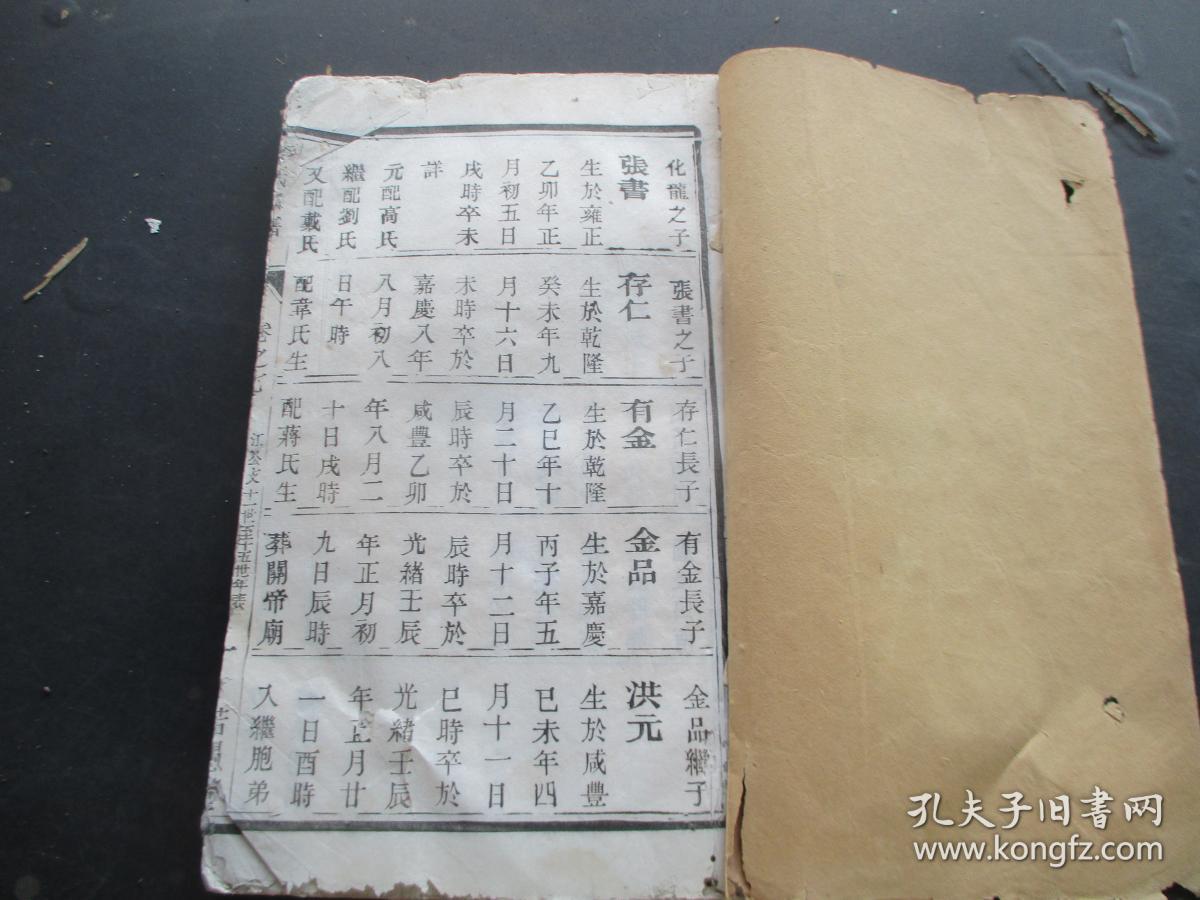 化龍之子
張書
生於雍正
乙卯年正
月初五日
戌時卒未
詳
元配高氏
繼配劉氏
又配戴氏
張書之子
存仁
生於乾隆
癸未年九
月十六日
未時卒於
嘉慶八年
八月初八
日午時
配韋氏生
存仁長子
有金
生於乾隆
乙巳年十
月二十日
辰時卒於
咸豐乙卯
年八月二
十日戌時
配蔣氏生
有金長子
金品
生於嘉慶
丙子年五
月十二日
辰時卒於
光緒壬辰
年正月初
九日辰時
葬關帝廟
金品繼子
洪元
生於咸豐
己未年四
月十一日
巳時卒於
光緒壬辰
年正月廿
一日酉時
入繼胞弟
卷之七
十一世至十五世年表
孔夫子旧書网
www.kongfz.com